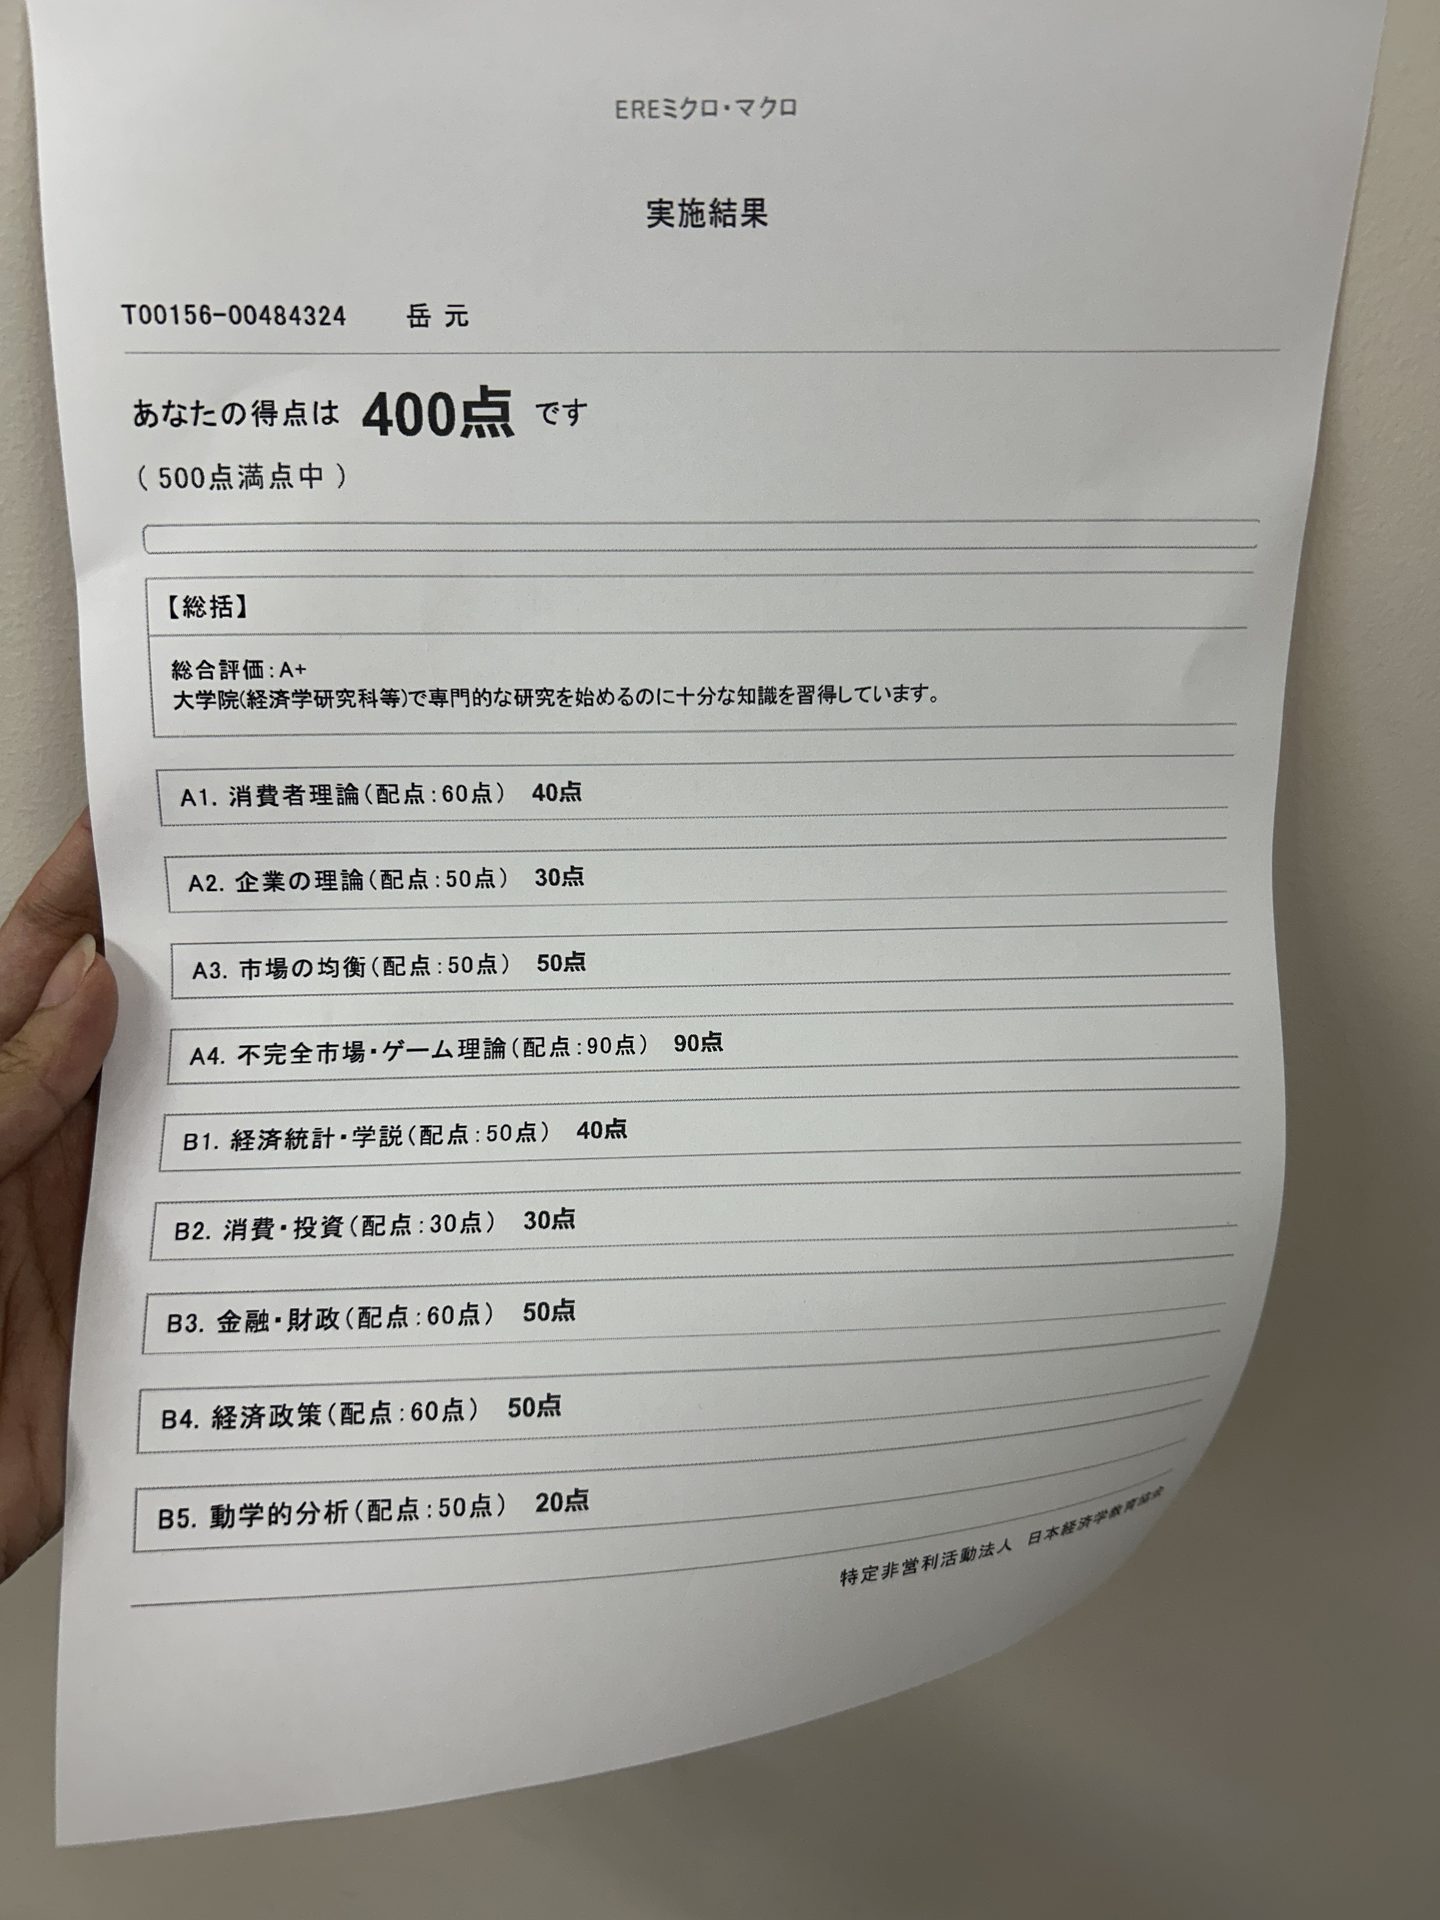 EREミクロ・マクロ
実施結果
T00156-00484324 岳 元
あなたの得点は 400点 です
( 500点満点中 )
【総括】
総合評価:A+
大学院(経済学研究科等)で専門的な研究を始めるのに十分な知識を習得しています。
A1. 消費者理論(配点:60点) 40点
A2. 企業の理論(配点:50点) 30点
A3. 市場の均衡(配点:50点) 50点
A4. 不完全市場・ゲーム理論(配点:90点) 90点
B1. 経済統計・学説(配点:50点) 40点
B2. 消費・投資(配点:30点) 30点
B3. 金融・財政(配点:60点) 50点
B4. 経済政策(配点:60点) 50点
B5. 動学的分析(配点:50点) 20点
特定非営利活動法人 日本経済学教育協会